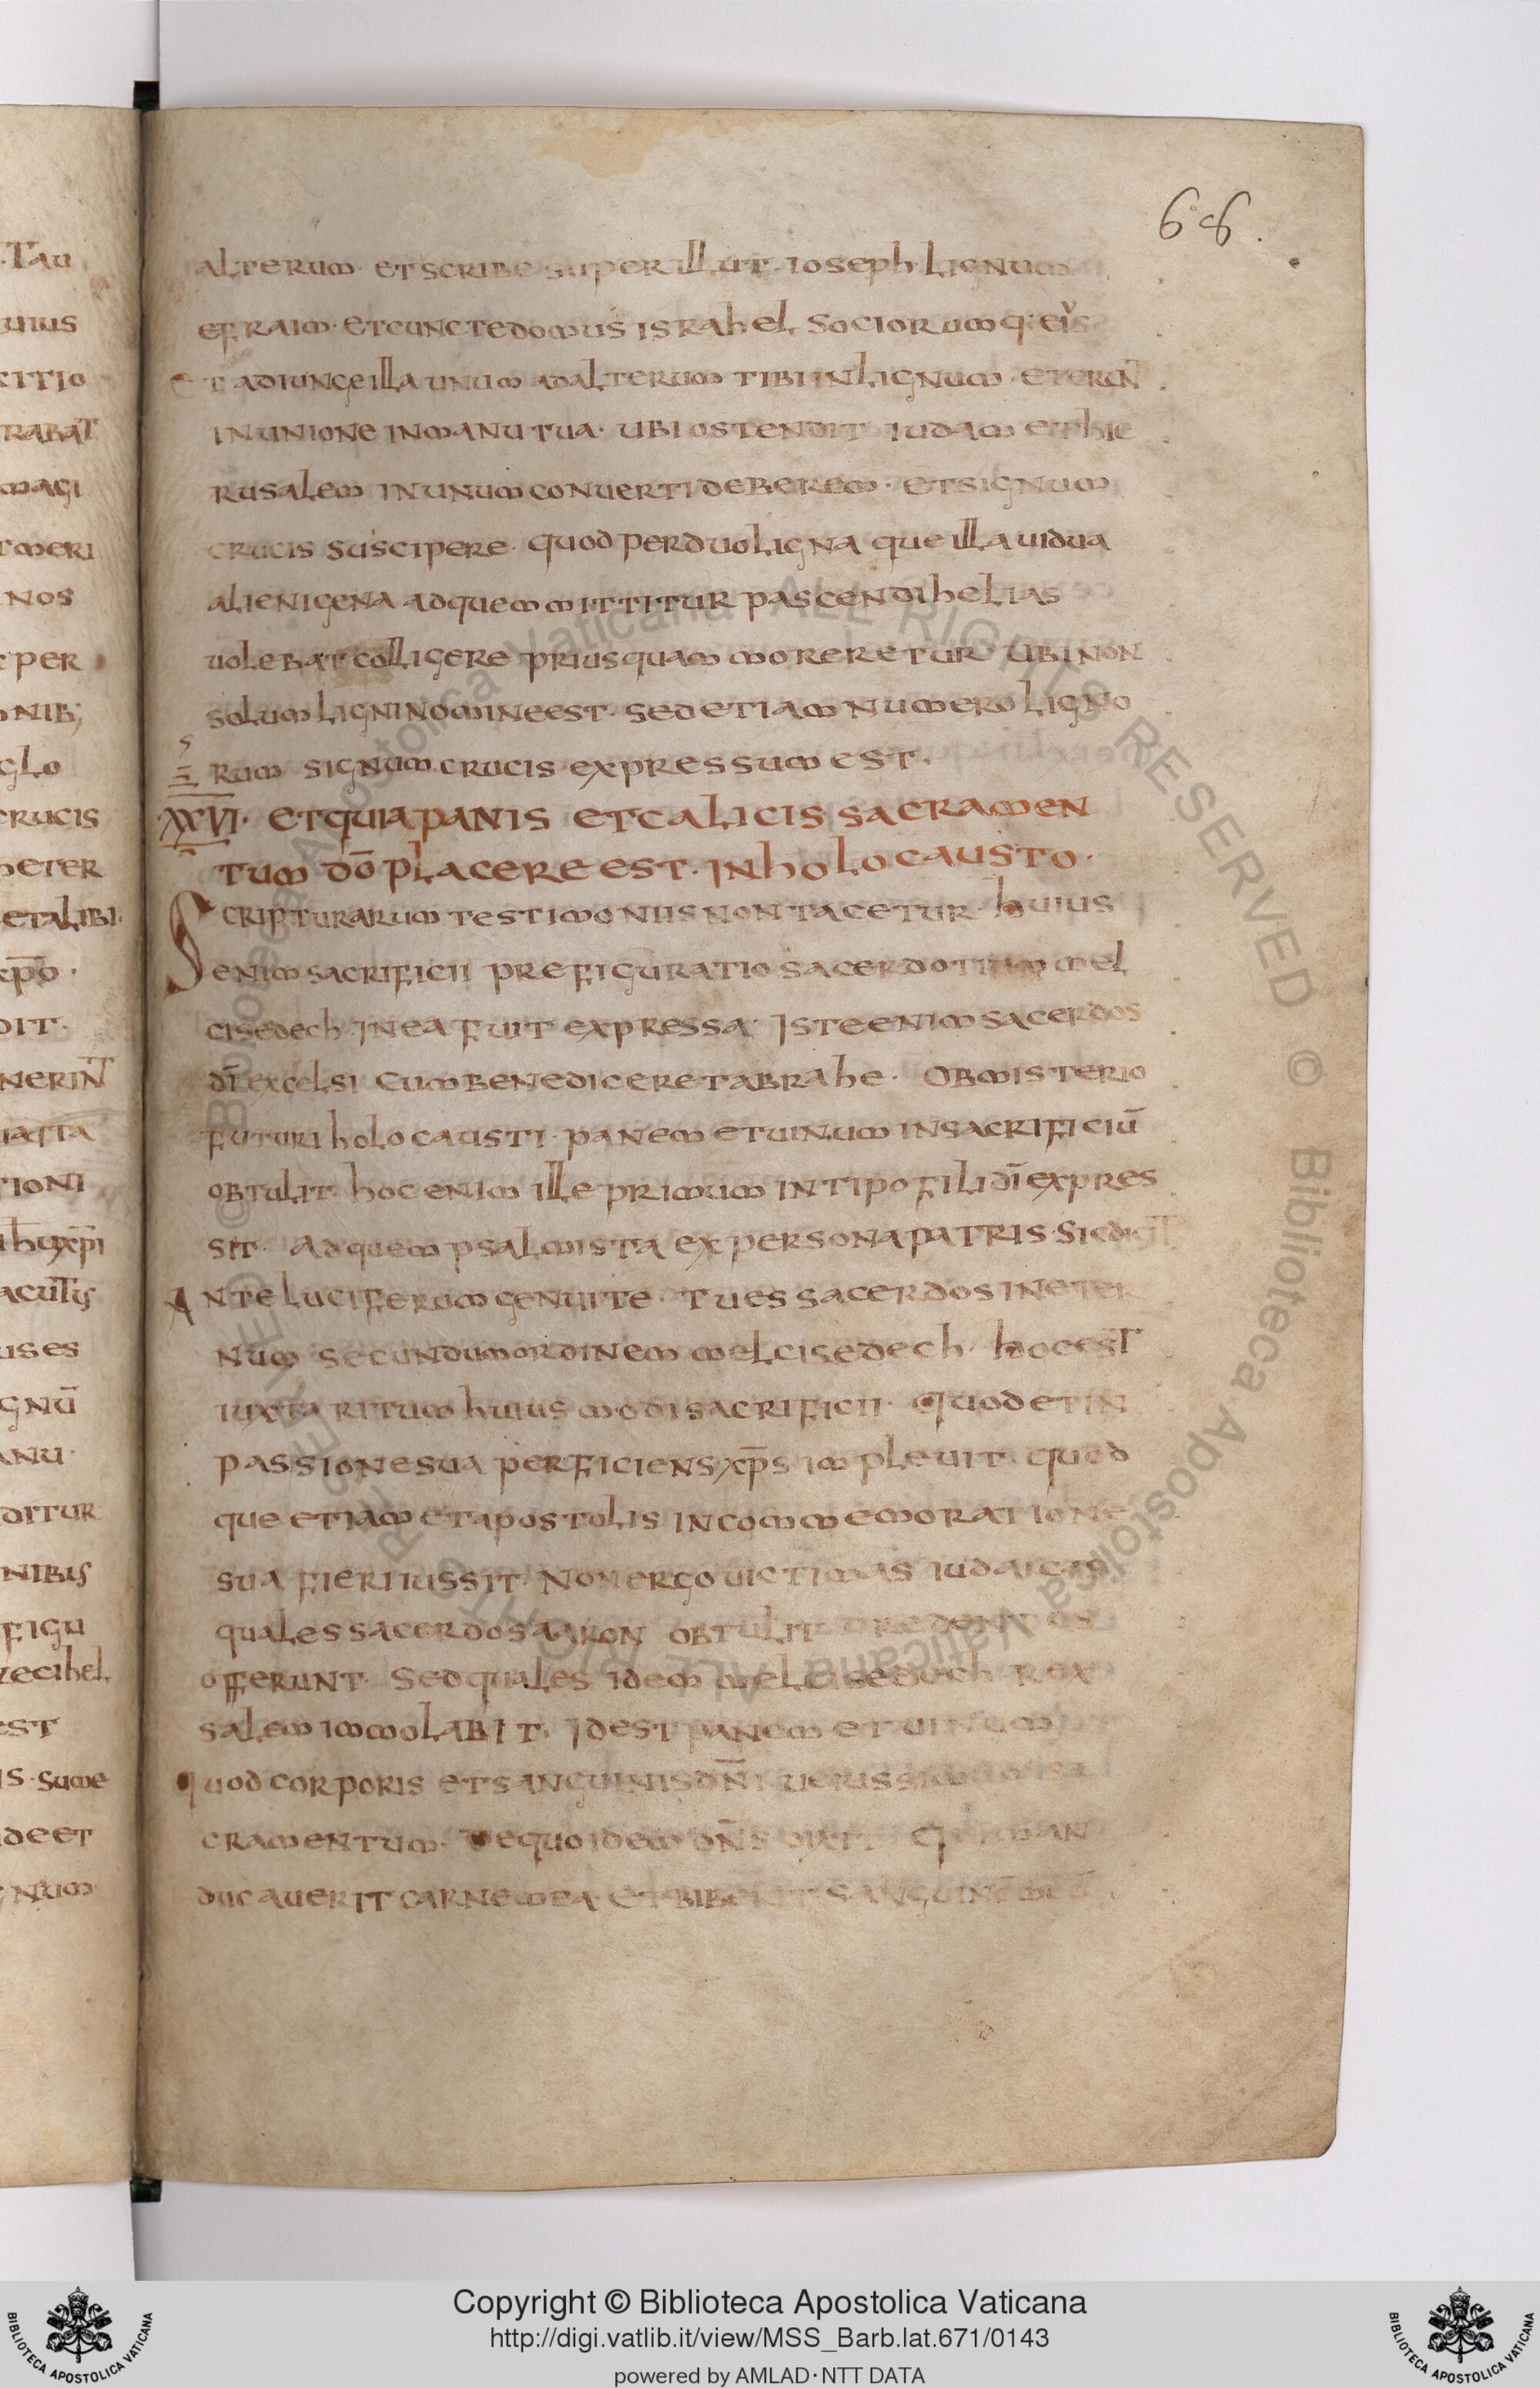 66.
alterum· et scribe super illut· ioseph· lignum
efraim· et cuncte domus israhel, sociorumq; eius
et adiunge illa unum ad alterum tibi in lignum· et erunt
in unione in manu tua· ubi ostendit iudam et hie
rusalem in unum conuerti deberem· et signum
crucis suscipere· quod per duo ligna que illa uidua
alienigena ad quem mittitur pascendi helias
uolebat colligere priusquam moreretur ubi non
solum ligni nomine est· sed etiam numero ligno
rum signum crucis expressum est.
XXVI· et quia panis et calicis sacramen
tum dō placere est· in holocausto·
Scripturarum testimoniis non tacetur· huius
enim sacrificii prefiguratio sacerdotium mel
cisedech in ea fuit expressa· Iste enim sacerdos
dī excelsi cum benediceret abrahe· ob misterio
futuri holocausti· panem et uinum in sacrificiū
obtulit· hoc enim ille primum in tipo fili dī expres
sit· ad quem psalmista ex persona patris· sic dicit
Ante luciferum genui te· tu es sacerdos in eter
num secundum ordinem melcisedech· hoc est
iuxta ritum huius modi sacrificii· quod et in
passione sua perficiens xp̄s impleuit· quod
que etiam et apostolis in commemoratione
sua fieri iussit· Non ergo uictimas iudaicas
quales sacerdos aaron obtulit
offerunt· Sed quales idem melcisedech rex
salem immolabit· Id est panem et uinum
quod corporis et sanguinis dn̄i
cramentum· De quo idem dn̄s dixit qui man
ducauerit carne mea· et biberit sanguinē meū
Copyright © Biblioteca Apostolica Vaticana
http://digi.vatlib.it/view/MSS_Barb.lat.671/0143
powered by AMLAD·NTT DATA